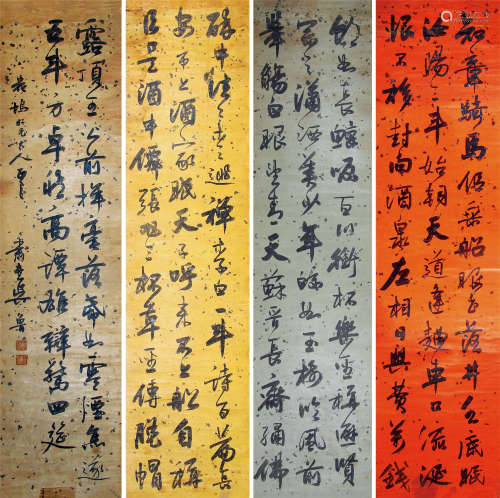 知章騎馬似乘船眼花落井水底眠
汝陽三斗始朝天道逢麴車口流涎
恨不移封向酒泉左相日興費萬錢
飲如長鯨吸百川銜杯樂聖稱避賢
宗之瀟洒美少年皎如玉樹臨風前
舉觴白眼望青天蘇晉長齋繡佛
醉中往往愛逃禪李白一斗詩百篇長
安市上酒家眠天子呼來不上船自稱
臣是酒中僊張旭三杯草聖傳脫帽
露頂王公前揮毫落紙如雲煙焦遂
五斗方卓然高譚雄辯驚四筵